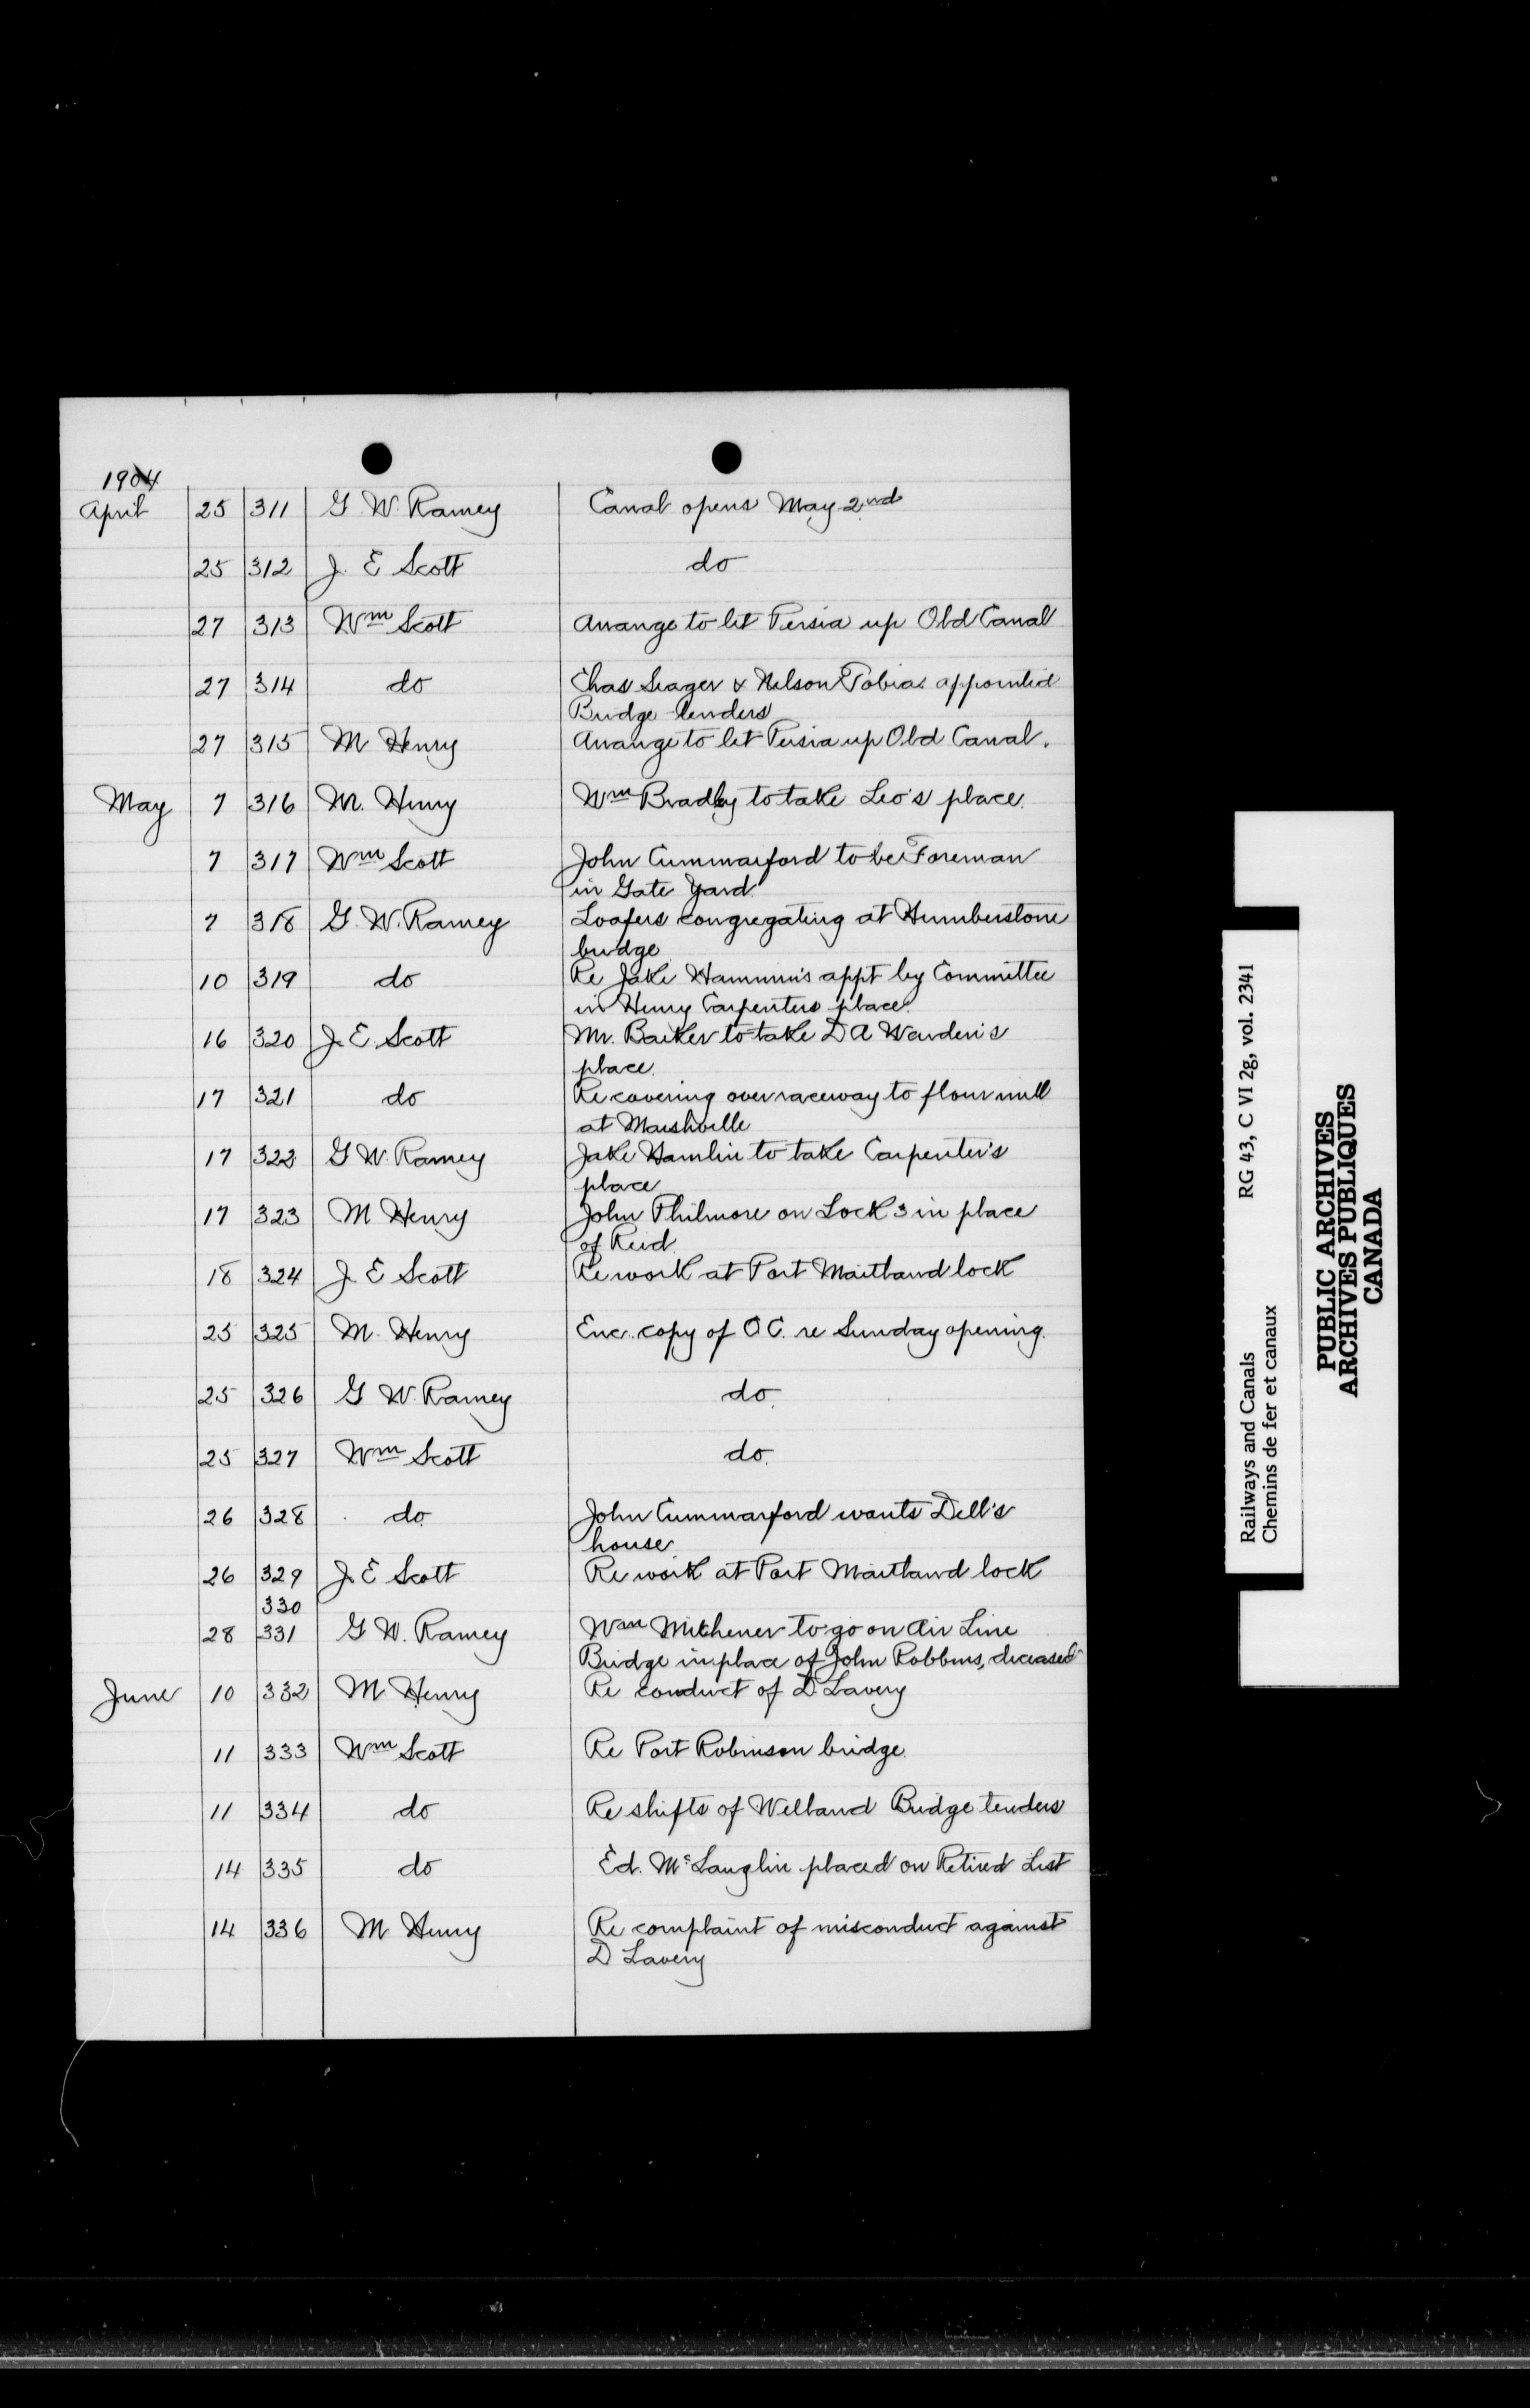 1904
April 25 311 G. W. Ramey Canal opens May 2nd
25 312 J. E Scott do
27 313 Wm Scott Arrange to let Persia up Old Canal
27 314 do Chas Seager & Nelson Tobias appointed
Bridge tenders
27 315 M Henry Arrange to let Persia up Old Canal.
May 7 316 M. Henry Wm Bradley to take Leo's place.
7 317 Wm Scott John Cummarford to be Foreman
in Gate Yard.
7 318 G. W. Ramey Loafers congregating at Humberstone
bridge
10 319 do Re Jake appt by Committee
in Henry Carpenters place.
16 320 J. E. Scott Mr. Barker to take D A Warden's
place.
17 321 do Re covering over raceway to flour mill
at Marshville
17 322 G W. Ramey Jake Hamlin to take Carpenter's
place
17 323 M Henry John Philmore on Lock 3 in place
of Reid.
18 324 J. E Scott Re work at Port Maitland lock
25 325 M. Henry Enc. copy of O C. re Sunday opening.
25 326 G W. Ramey do.
25 327 Wm Scott do.
26 328 do. John Cummarford wants Dell's
house.
26 329 J. E Scott Re work at Port Maitland lock
330
28 331 G W. Ramey Wm Michener to go on Air Line
Bridge in place of John Robbins, deceased
June 10 332 M Henry Re conduct of D. Lavery
11 333 Wm Scott Re Port Robinson bridge.
11 334 do Re shifts of Welland Bridge tenders
14 335 do Ed. McLauglin placed on Retired List
14 336 M Henry Re complaint of misconduct against
D Lavery
Railways and Canals RG 43, C VI 2g, vol. 2341
Chemins de fer et canaux
PUBLIC ARCHIVES
ARCHIVES PUBLIQUES
CANADA